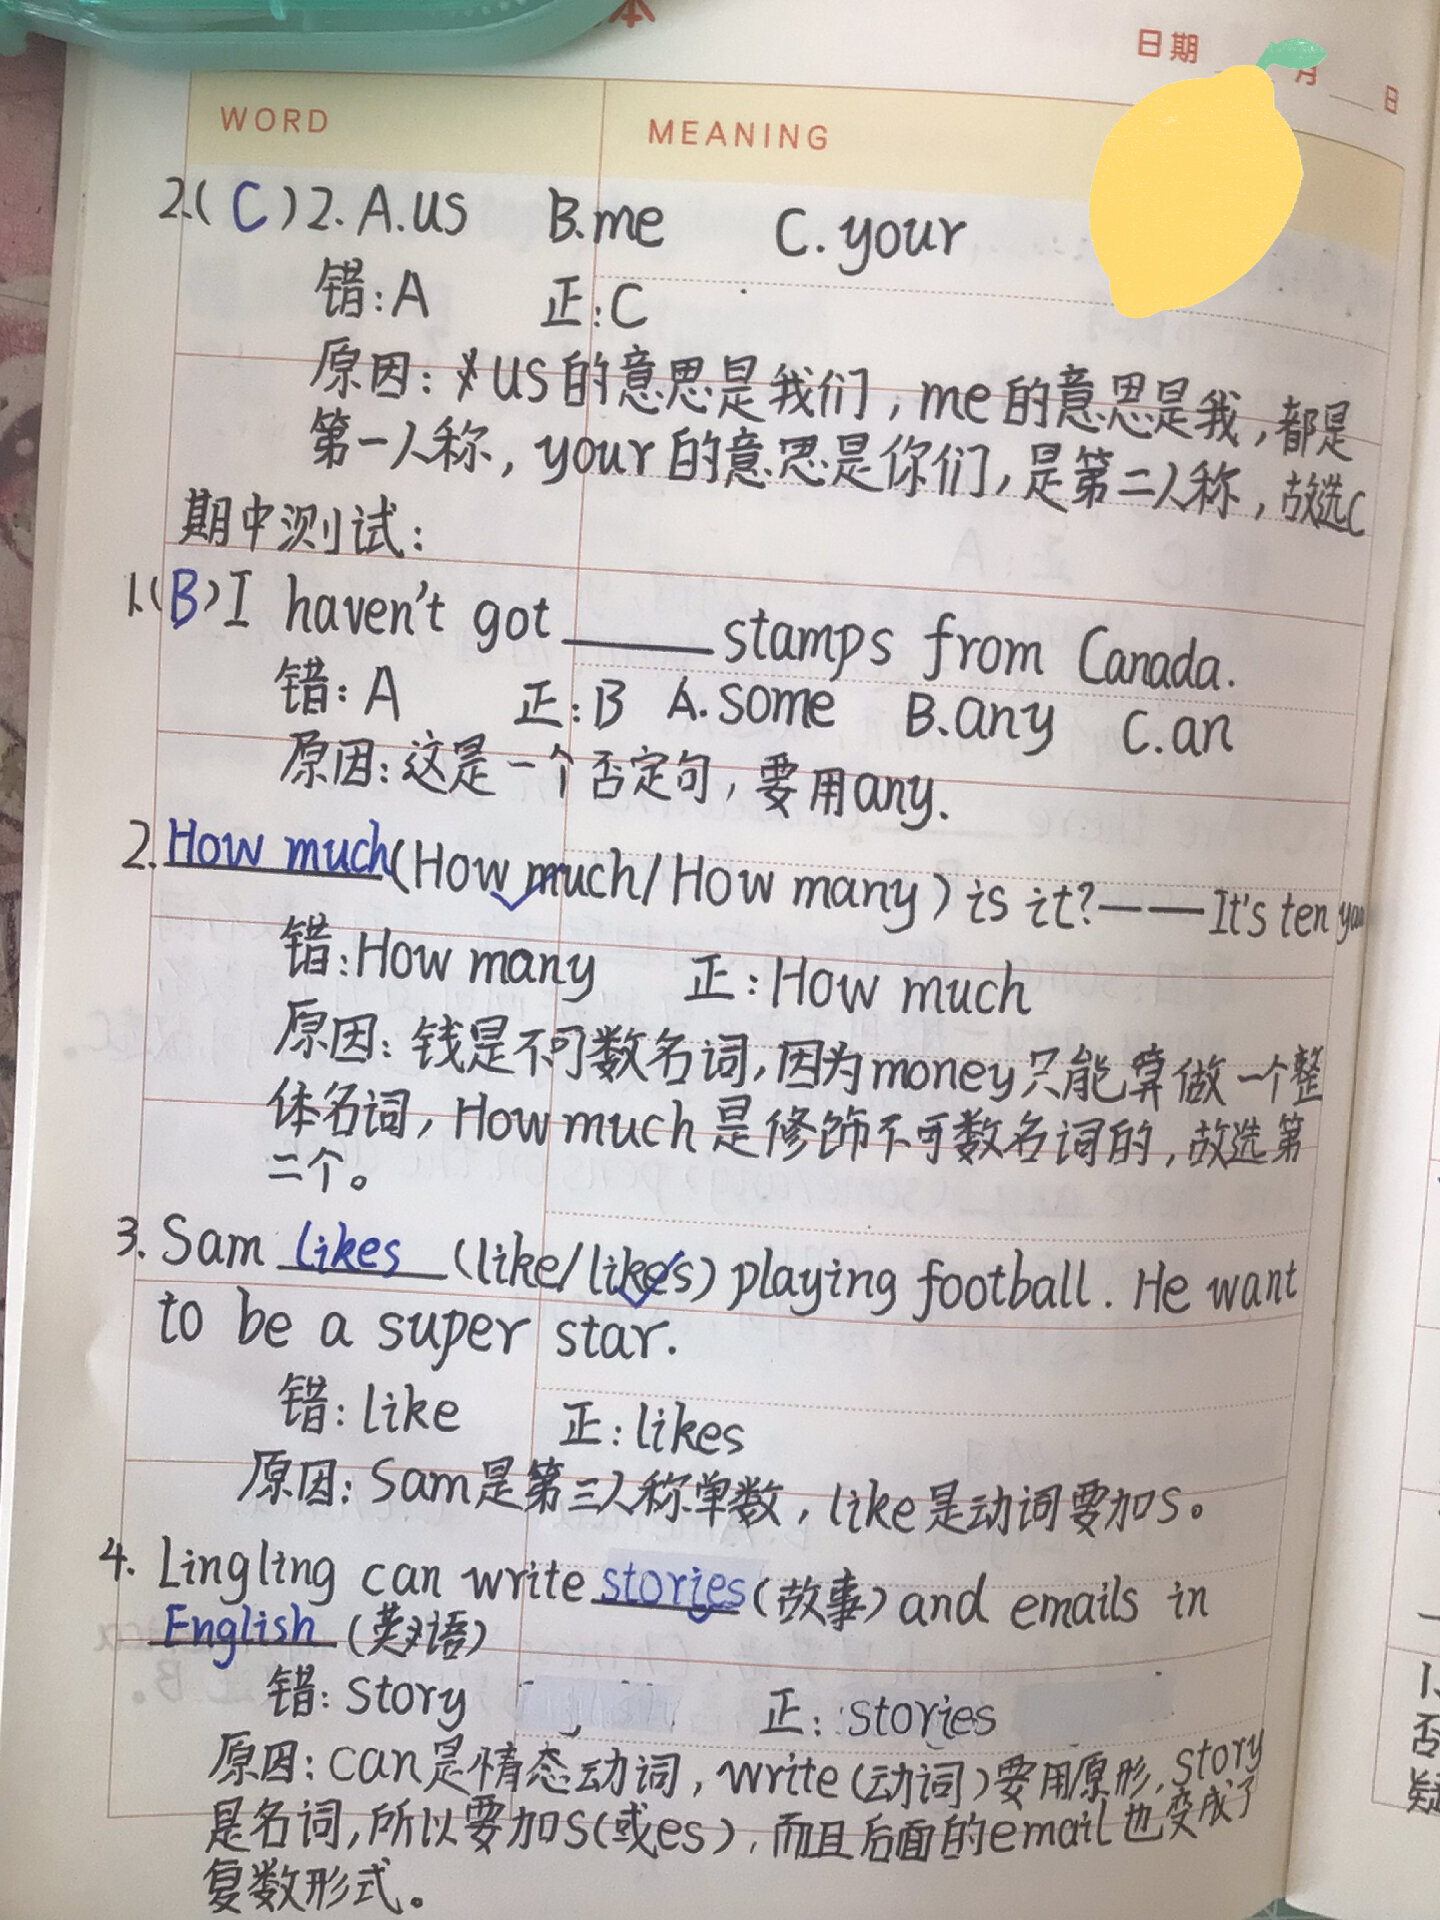 本
日期 月 日
WORD MEANING
2.(C)2. A.us B.me C.your
错:A 正:C
原因: us的意思是我们,me的意思是我,都是
第一人称,your的意思是你们,是第二人称,故选C
期中测试:
1.(B)I haven't got ____ stamps from Canada.
错:A 正:B A.some B.any C.an
原因:这是一个否定句,要用any.
2.How much(How much/How many)is it?——It's ten
错:How many 正:How much
原因:钱是不可数名词,因为money只能算做一个整
体名词,How much是修饰不可数名词的,故选第
二个。
3. Sam likes (like/likes) playing football. He want
to be a super star.
错:like 正:likes
原因:Sam是第三人称单数,like是动词要加s。
4. Lingling can write stories(故事)and emails in
English(英语)
错:story 正:stories
原因:can是情态动词,write(动词)要用原形,story
是名词,所以要加s(或es),而且后面的email也变成了
复数形式。